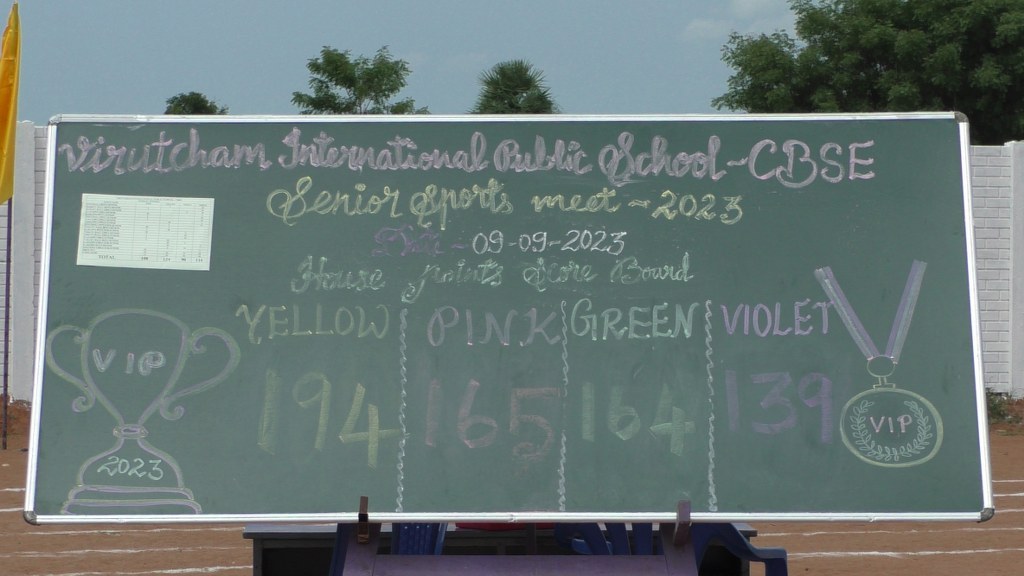 Virutcham International Public School - CBSE
Senior Sports meet - 2023
Date - 09-09-2023
House points Score Board
YELLOW PINK GREEN VIOLET
194 165 164 139
VIP
2023
VIP
TOTAL